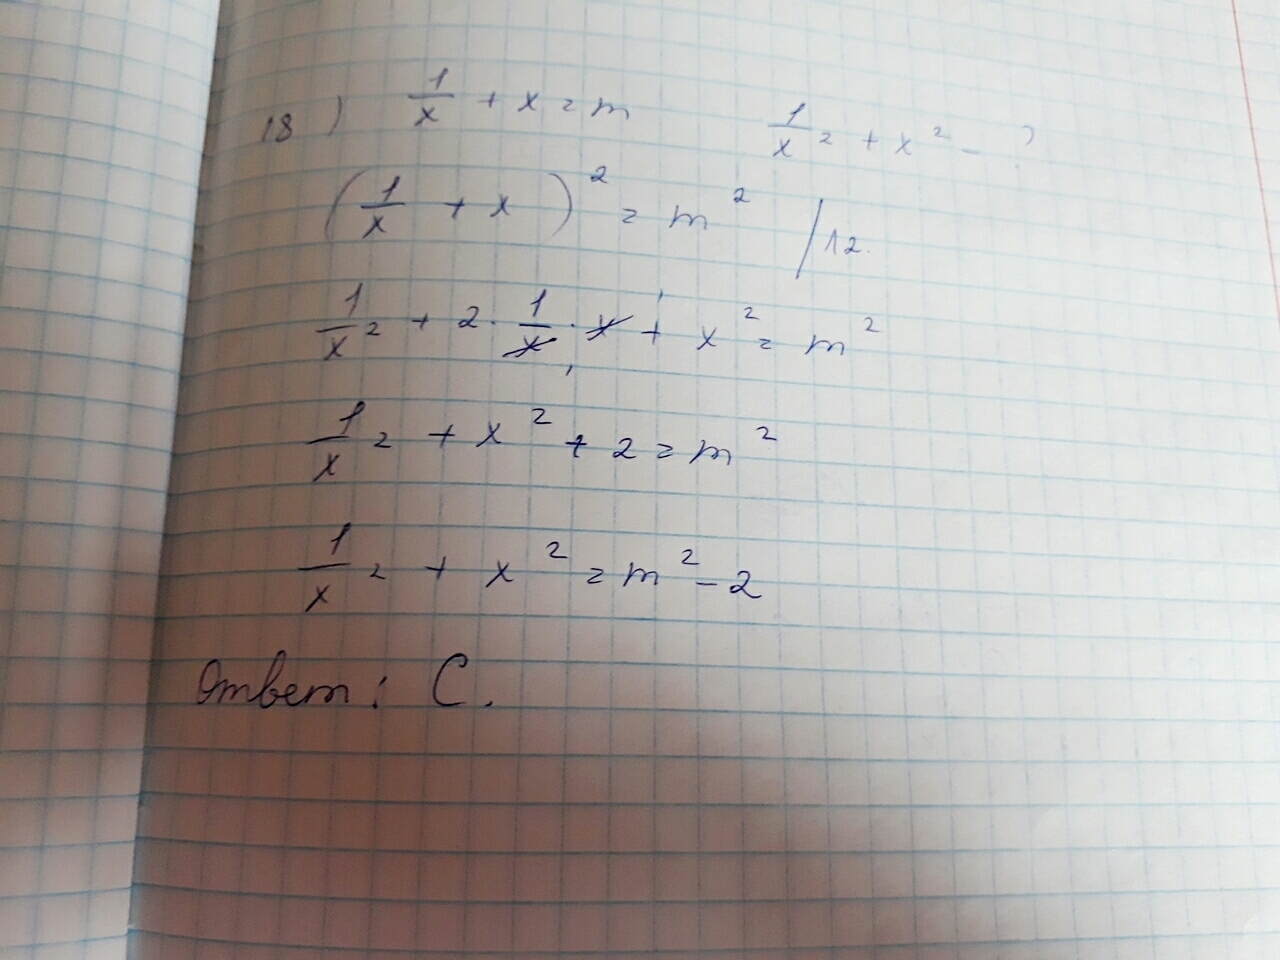 18) 1/x + x = m 1/x² + x² - ?
(1/x + x)² = m² /^2.
1/x² + 2 · 1/x · x + x² = m²
1/x² + x² + 2 = m²
1/x² + x² = m² - 2
Ответ: C.